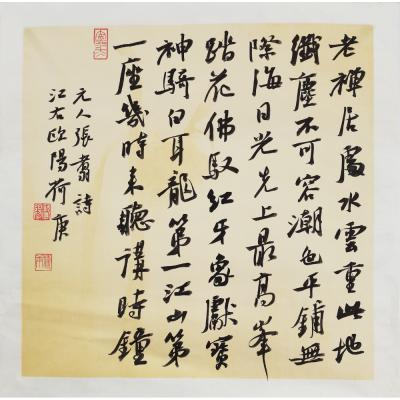 老禪居處水雲重此地
纖塵不可容潮色平鋪無
際海日光先上最高峯
踏花佛馭紅牙象獻寶
神騎白耳龍第一江山第
一座幾時来聽講時鐘
元人張翥詩
江右歐陽荷庚